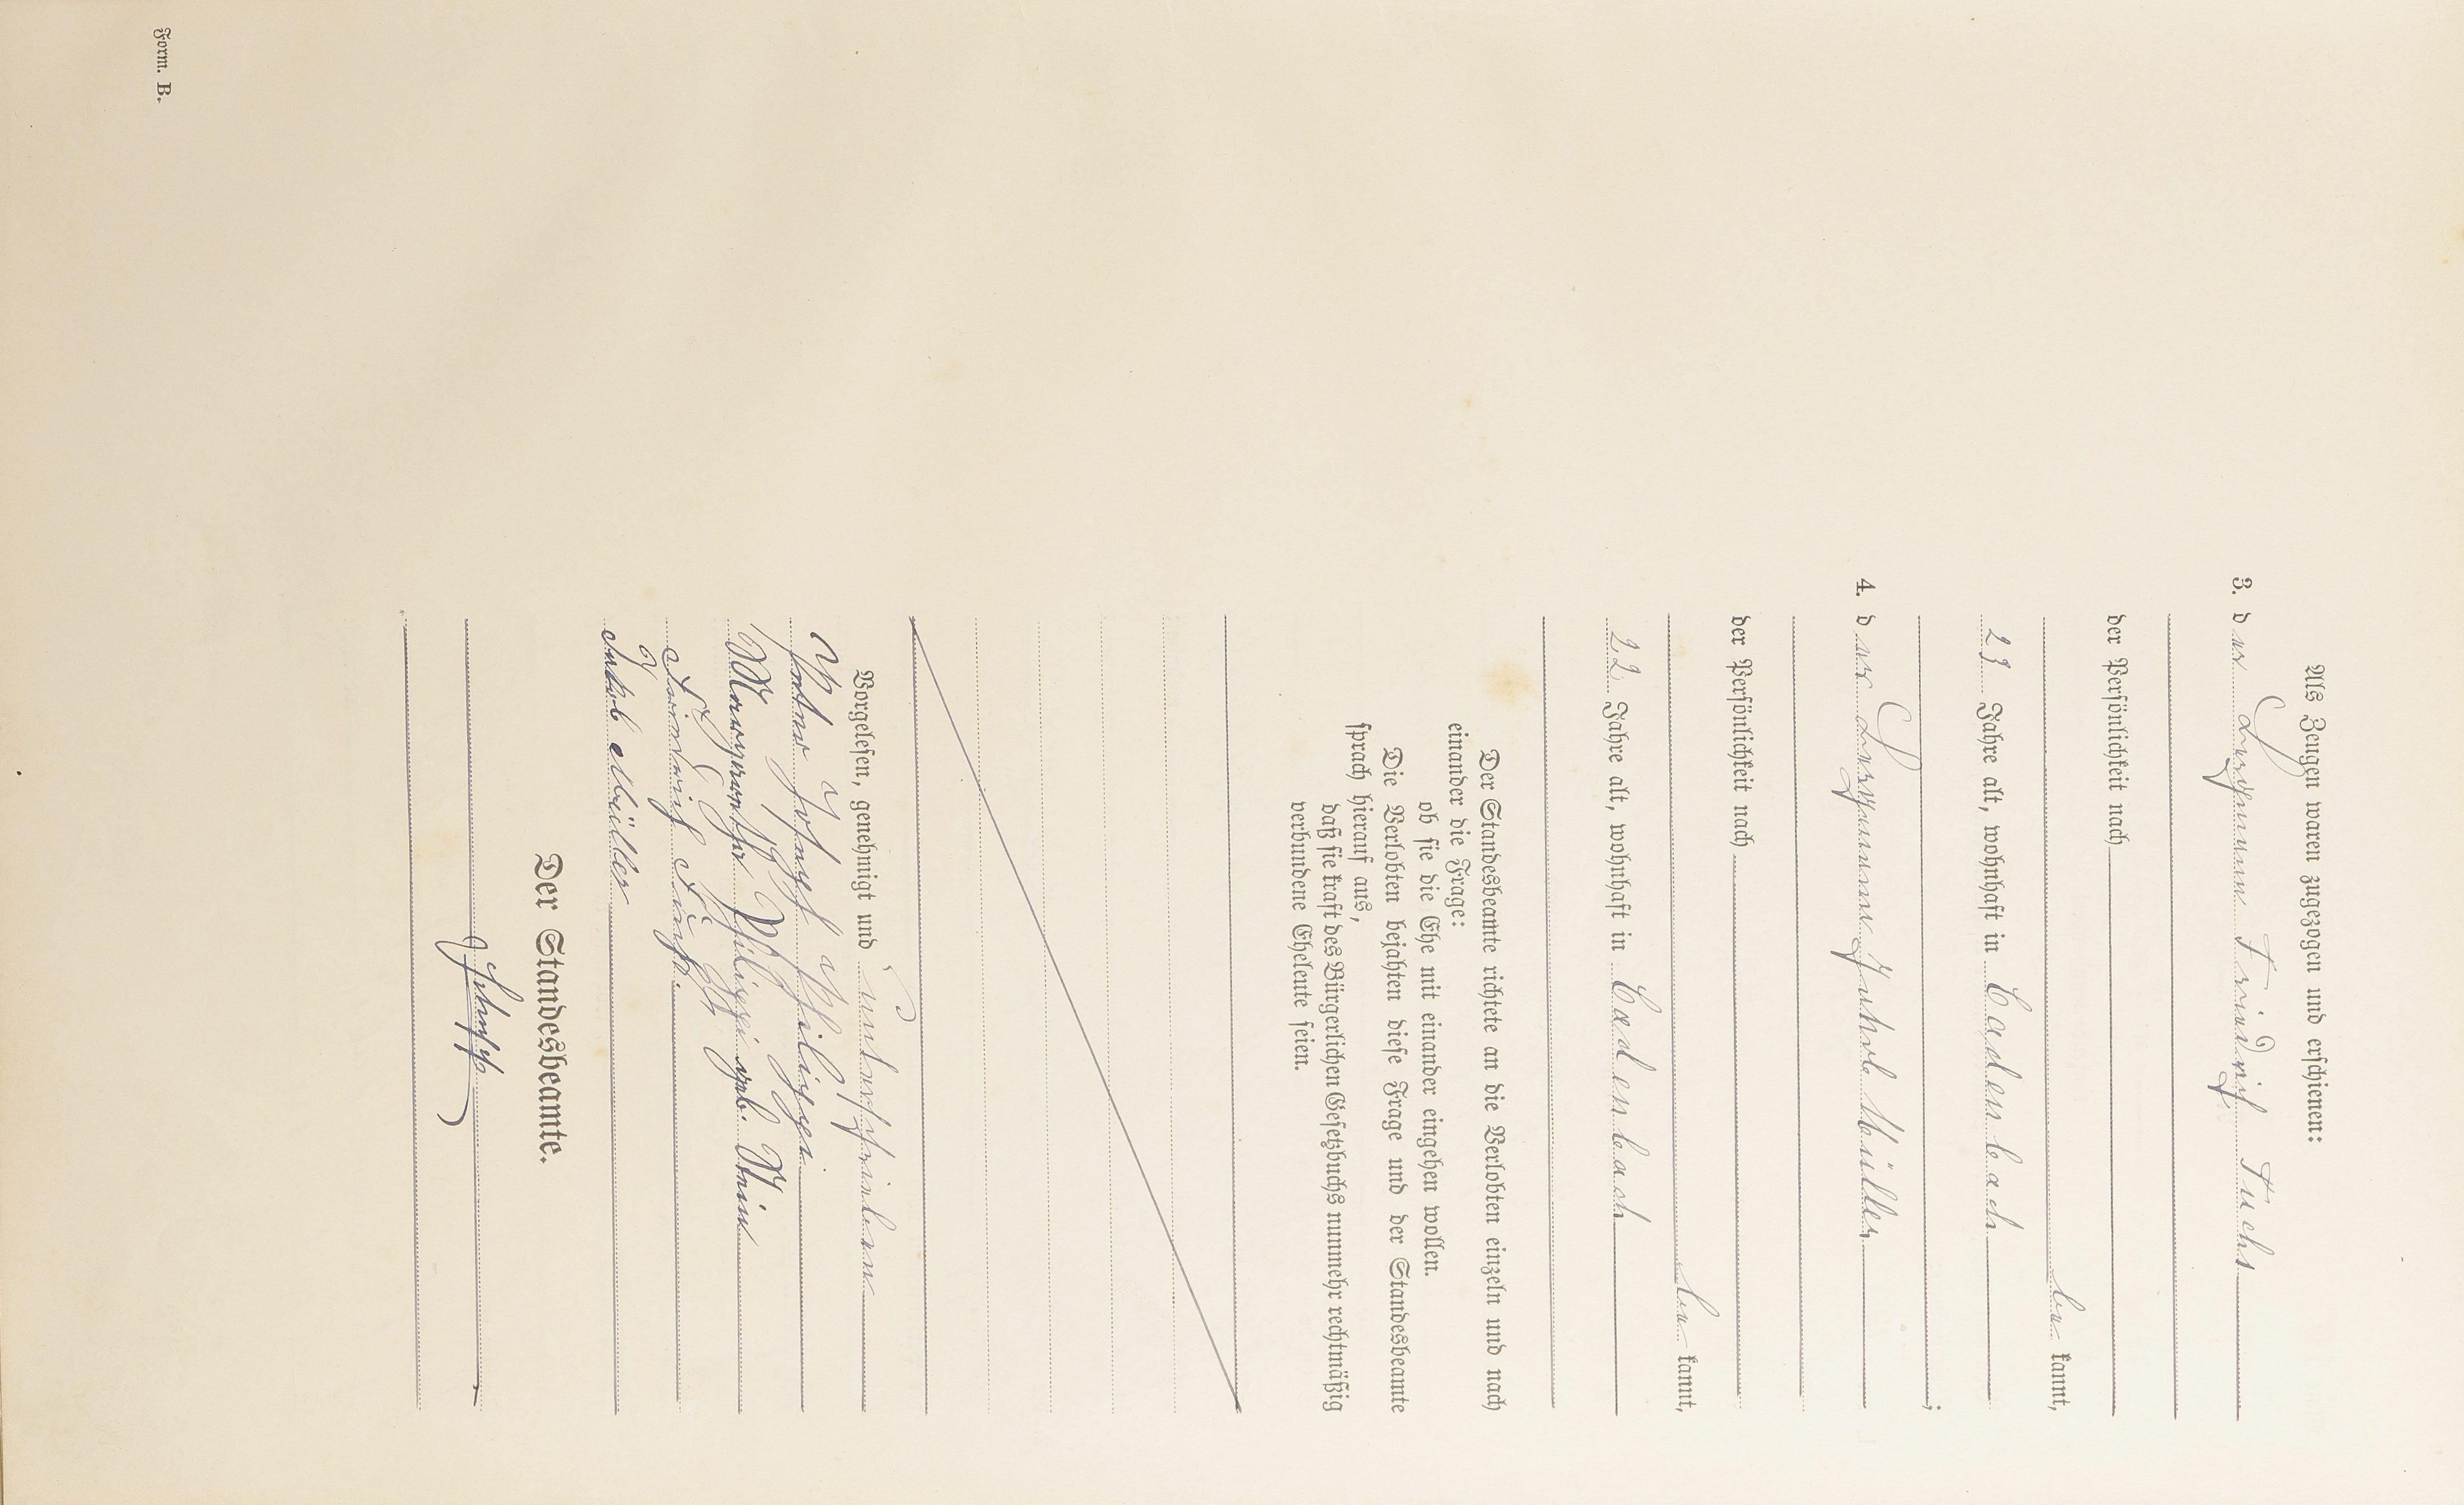 Als Zeugen waren zugezogen und erschienen:
3. der Bergmann Friedrich Fuchs
der Persönlichkeit nach
be kannt,
23 Jahre alt, wohnhaft in Cadenbach
;
4. der Bergmann Jakob Müller
der Persönlichkeit nach
be kannt,
22 Jahre alt, wohnhaft in Cadenbach
Der Standesbeamte richtete an die Verlobten einzeln und nach
einander die Frage:
ob sie die Ehe mit einander eingehen wollen.
Die Verlobten bejahten diese Frage und der Standesbeamte
sprach hierauf aus,
daß sie kraft des Bürgerlichen Gesetzbuchs nunmehr rechtmäßig
verbundene Eheleute seien.
Vorgelesen, genehmigt und unterschrieben
Peter Josef Philippi
Margaretha Philippi geb. Klein
Friedrich Fuchs.
Jakob Müller
Der Standesbeamte.
Form. B.